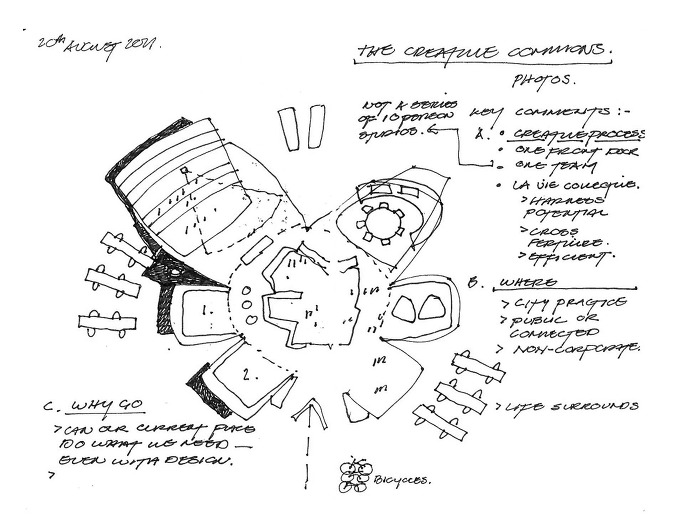 20th AUGUST 2021.
THE CREATIVE COMMONS.
PHOTOS.
NOT A SERIES
OF 10 PERSON
STUDIOS.
KEY COMMENTS :-
A. • CREATIVE PROCESS
• ONE FRONT DOOR
• ONE TEAM
• LA VIE COLLECTIVE.
> HARNESS
POTENTIAL
> CROSS
FERTILISE.
> EFFICIENT.
B. WHERE
> CITY PRACTICE
> PUBLIC OR
CONNECTED
> NON-CORPORATE.
> LIFE SURROUNDS
1.
2.
C. WHY GO
> CAN OUR CURRENT PLACE
DO WHAT WE NEED —
EVEN WITH DESIGN.
>
BICYCLES.